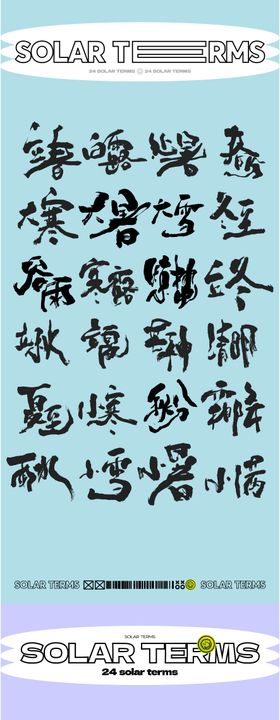 SOLAR TERMS
24 SOLAR TERMS 24 SOLAR TERMS
立春 白露 处暑 春分
大寒 大暑 大雪 冬至
谷雨 寒露 惊蛰 立冬
立秋 立夏 芒种 清明
夏至 小寒 秋分 霜降
雨水 小雪 小暑 小满
SOLAR TERMS SOLAR TERMS
SOLAR TERMS
SOLAR TERMS
24 solar terms